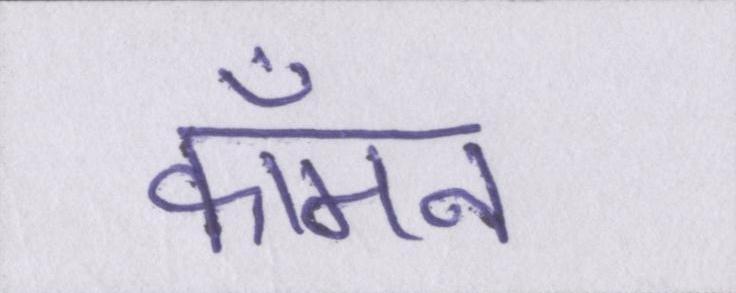 काँमन